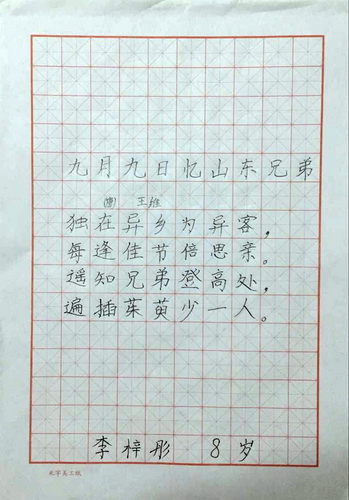 九月九日忆山东兄弟
(唐) 王维
独在异乡为异客，
每逢佳节倍思亲。
遥知兄弟登高处，
遍插茱萸少一人。
李梓彤 8岁